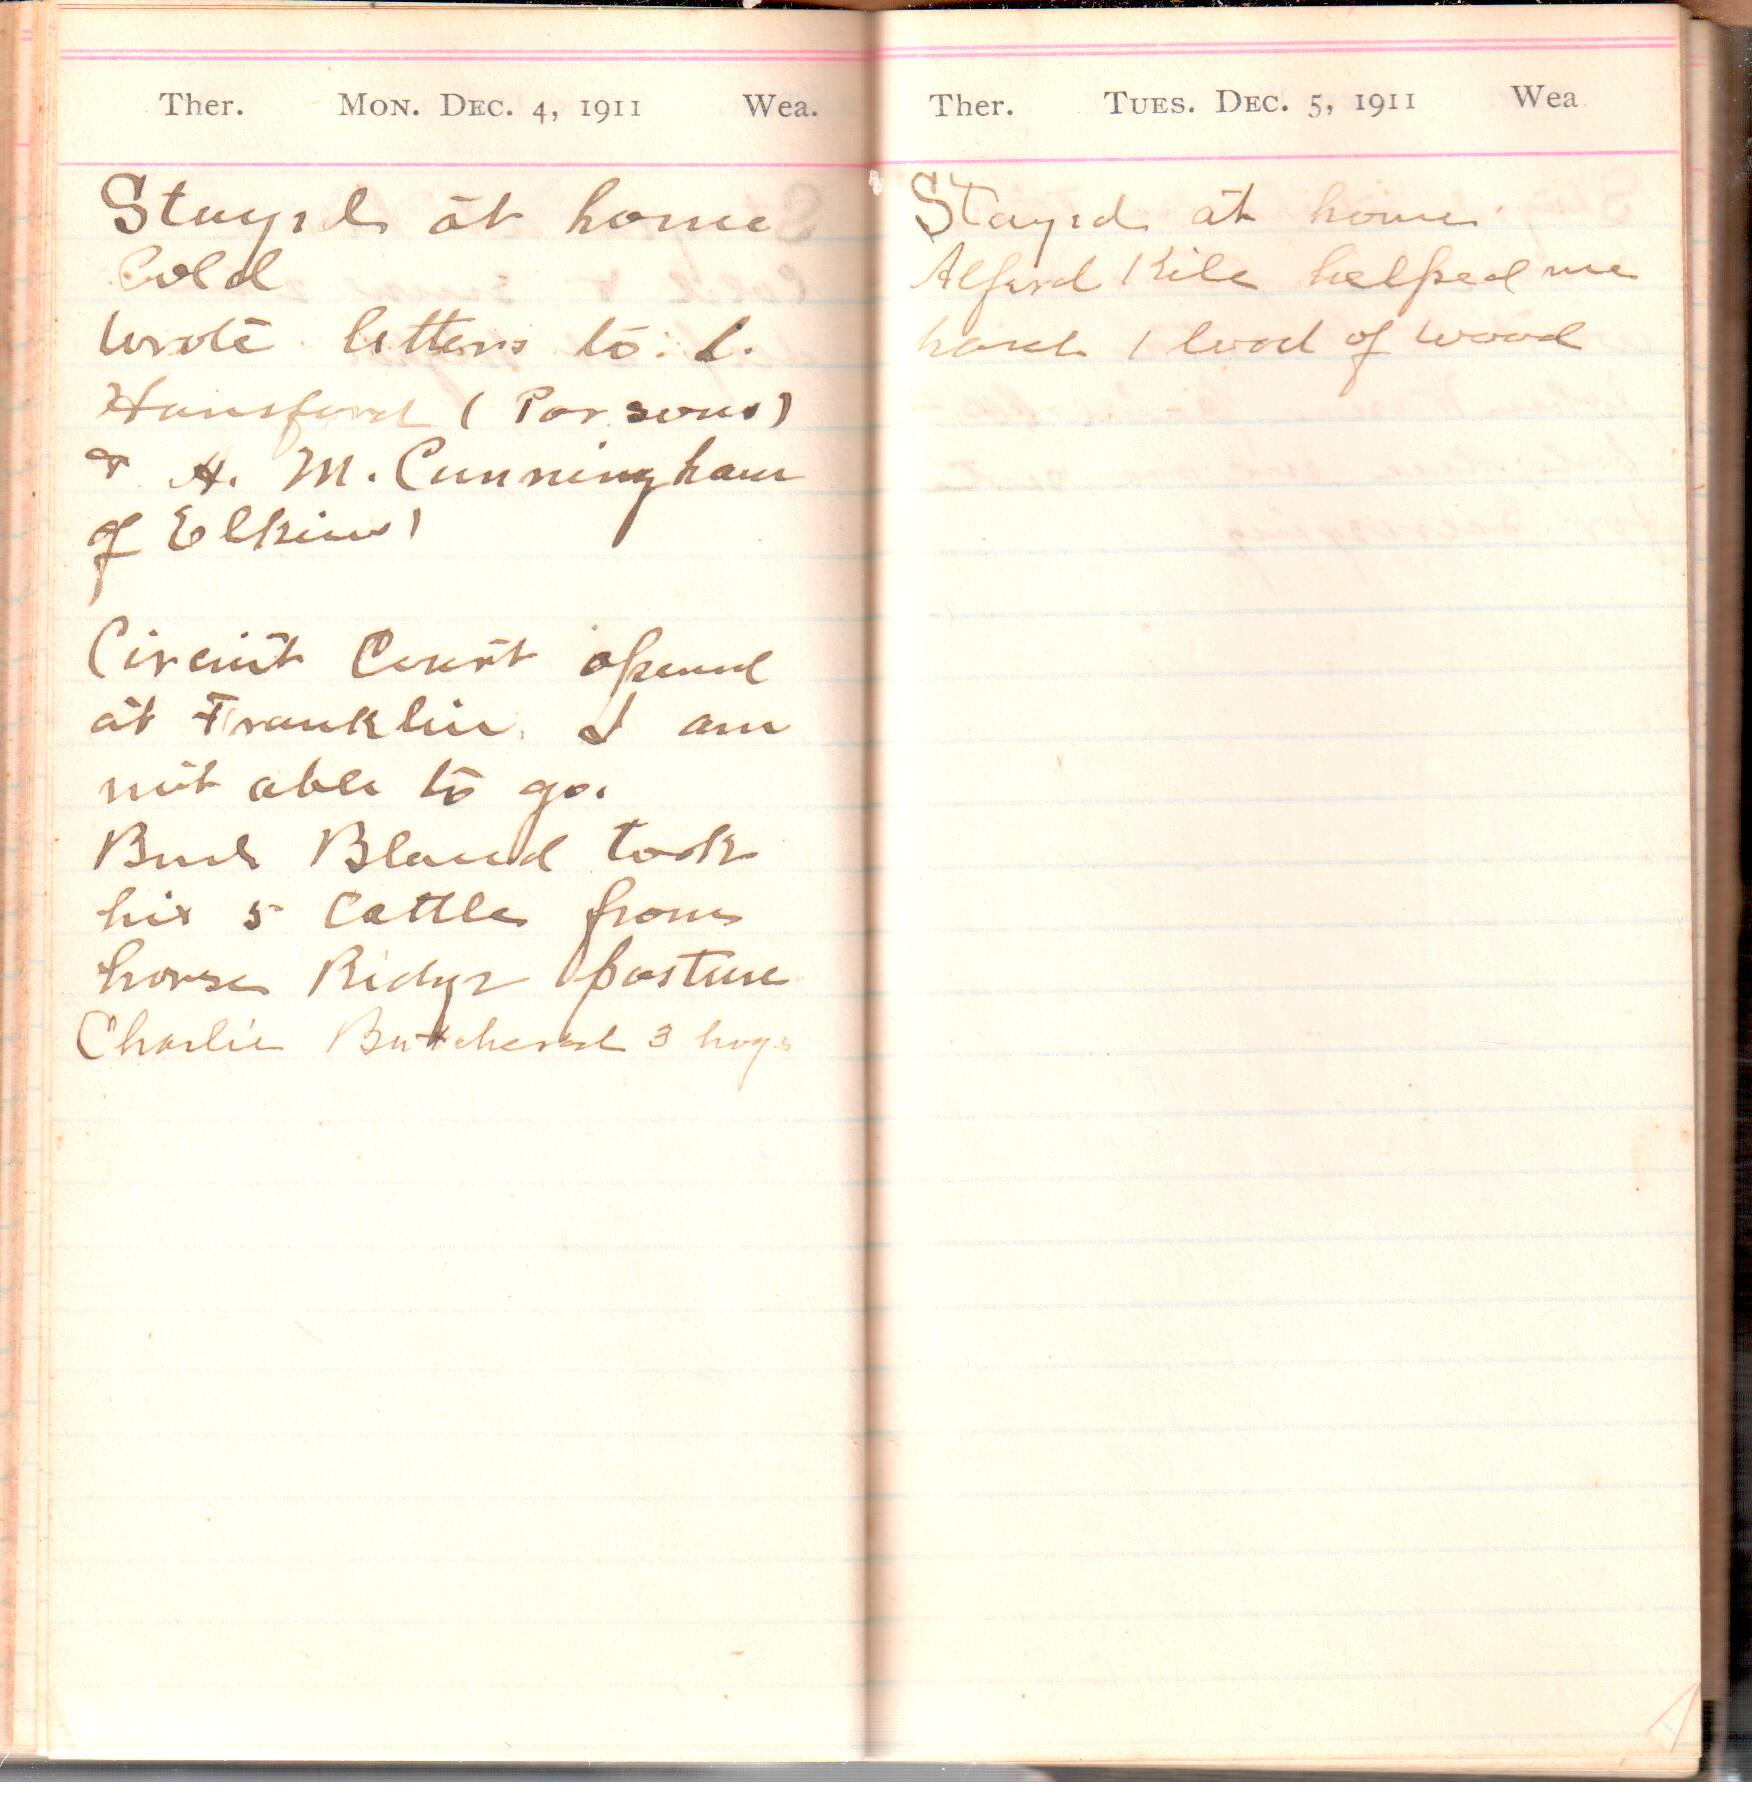 Ther. Mon. Dec. 4, 1911 Wea.
Stayed at home
Cold
wrote letters to. L.
Hansford (Parsons)
& A. M. Cunningham
of Elkins)
Circuit Court opened
at Franklin. I am
not able to go.
Buck Bland took
his 5 Cattle from
horse Ridge pasture
Charlie Butchered 3 hogs
Ther. Tues. Dec. 5, 1911 Wea
Stayed at home
Alfard Kile helped me
1 load of wood